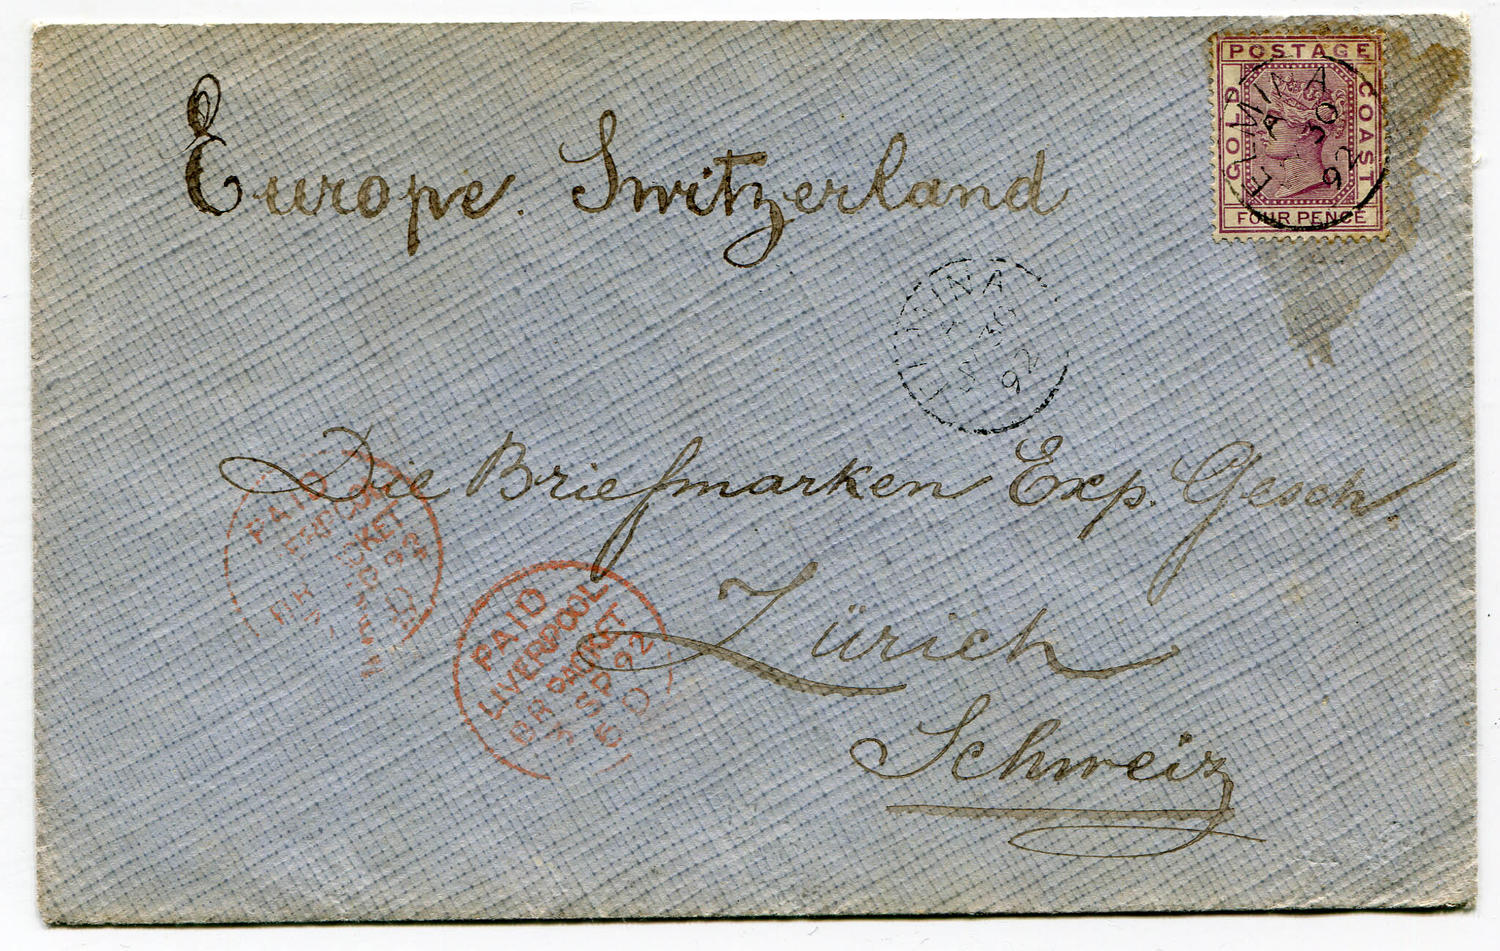 Europe. Switzerland
POSTAGE
GOLD
COAST
FOUR PENCE
ELMINA
A
30
92
MINA
30
92
Die Briefmarken Exp. Gesch.
Zürich
Schweiz
PAID
LIVERPOOL
BR PACKET
SP 92
5 D
PAID
92